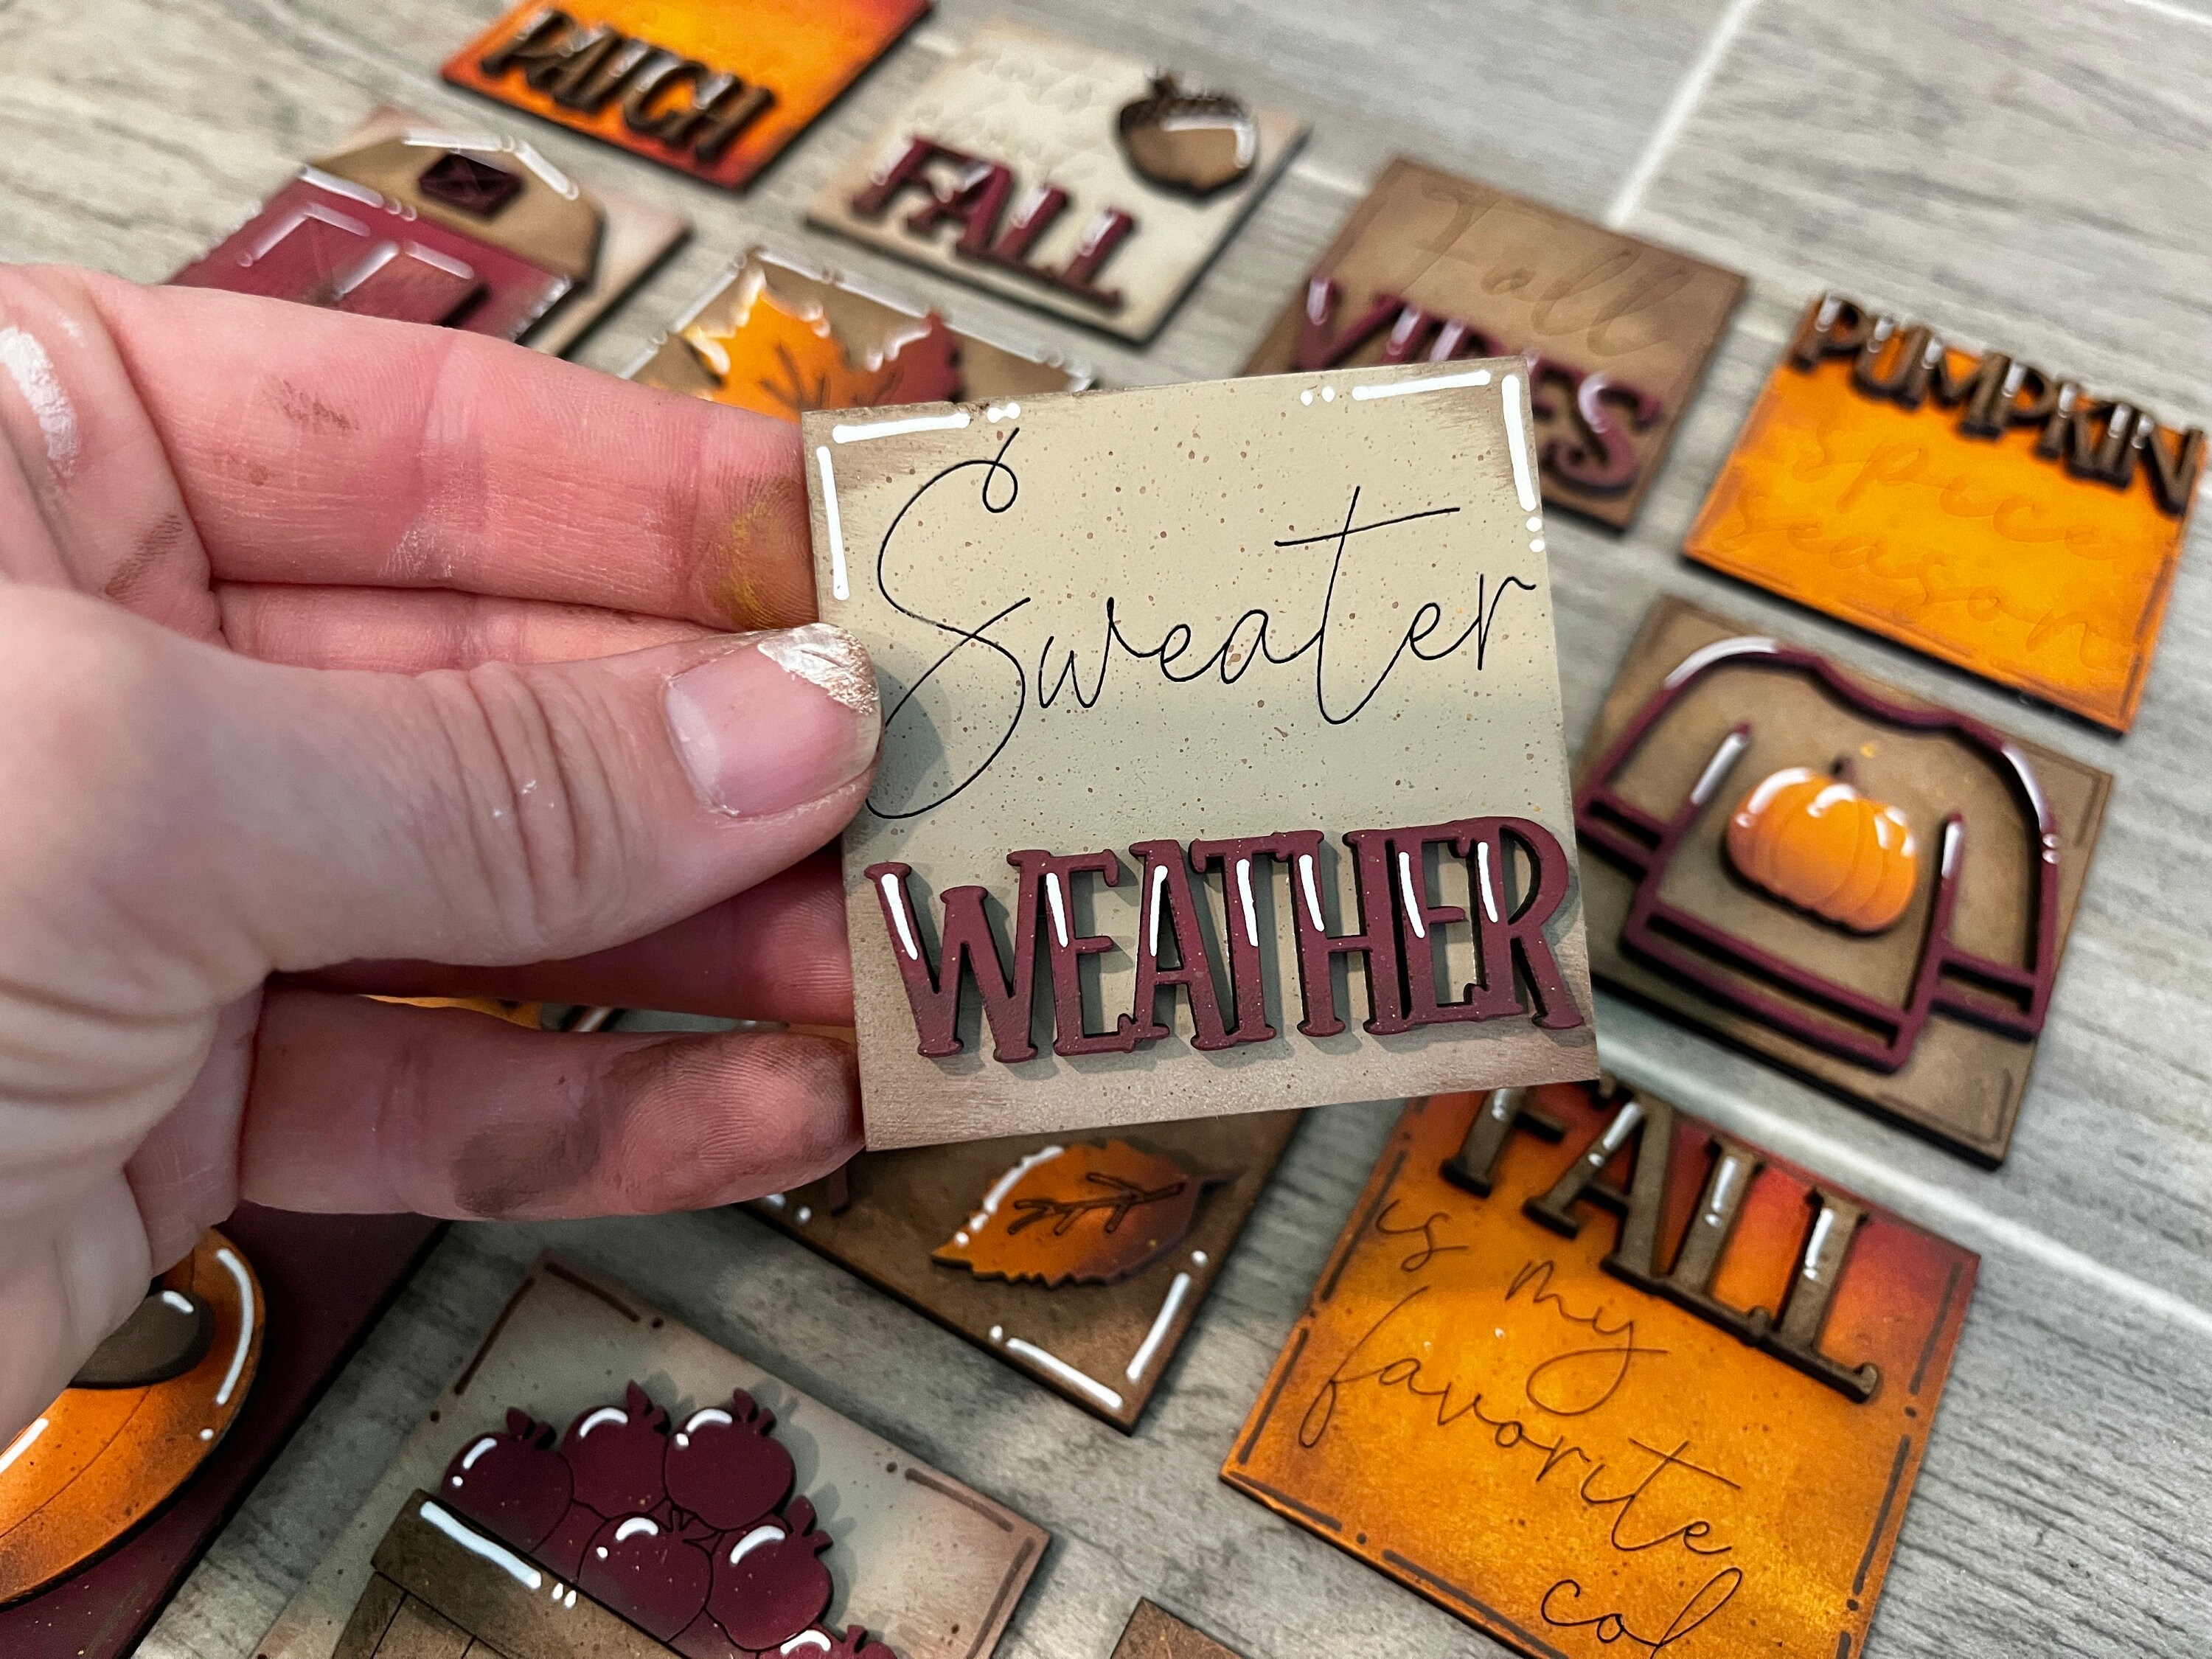 PATCH
FALL
Fall
VIBES
PUMPKIN
spice
season
Sweater
WEATHER
FALL
is my
favorite
col